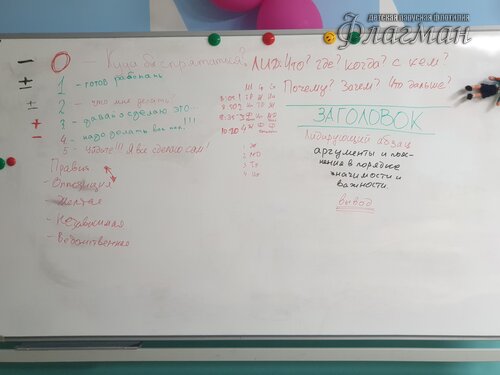 детская парусная флотилия
Флагман
0 - Куда бы спрятаться?
ЛИД: Кто? Где? Когда? С кем?
Почему? Зачем? Что дальше?
1 - готов работать
2 - что мне делать?
3 - давай я сделаю это...
4 - надо делать вот так!!!
5 - Уйдите!!! Я все сделаю сам!
Правила
- Оппозиция
- Желтая
- Независимая
- Ведомственная
ЗАГОЛОВОК
Лидирующий абзац
аргументы и пояс-
нения в порядке
значимости и
важности.
вывод